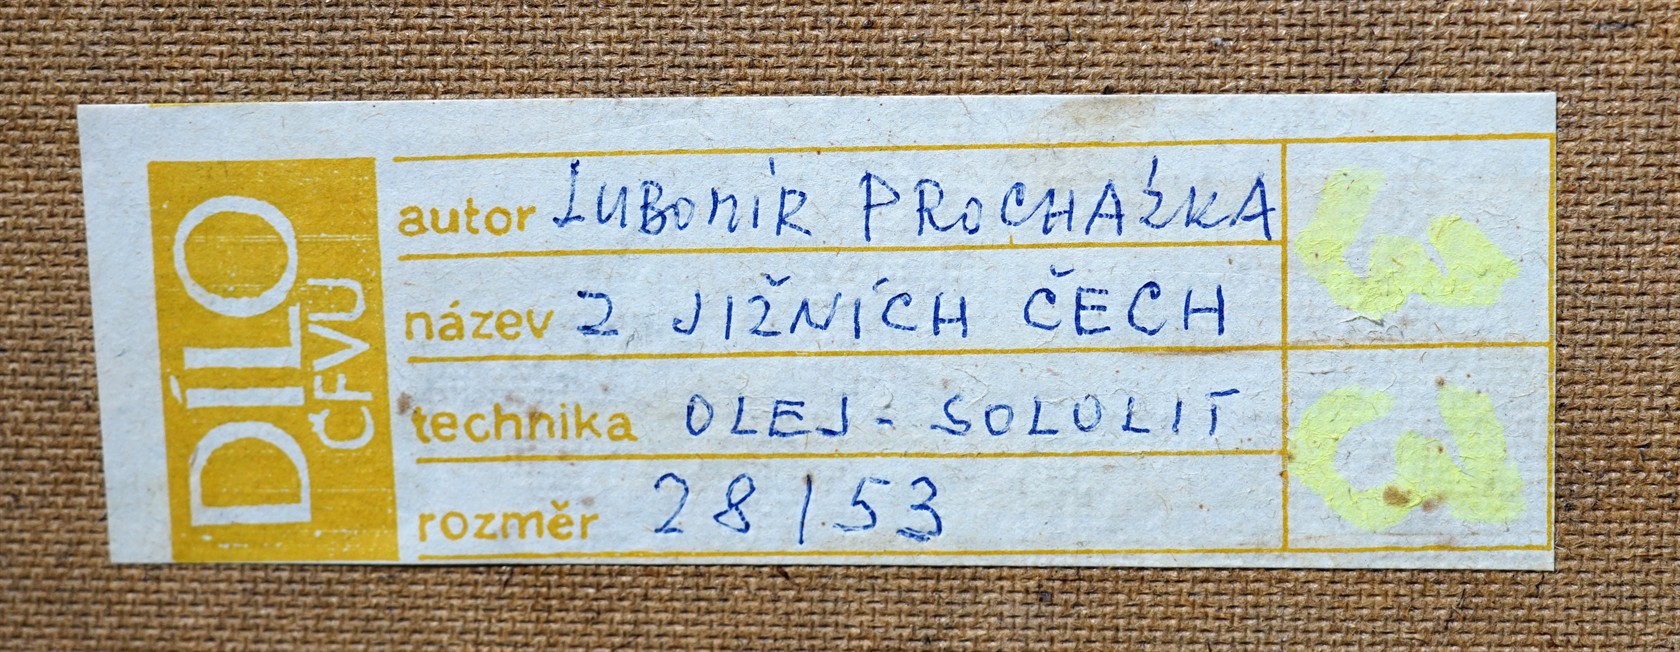 DÍLO
ČFVU
autor LUBOMÍR PROCHÁZKA
název Z JIŽNÍCH ČECH
technika OLEJ - SOLOLIT
rozměr 28/53